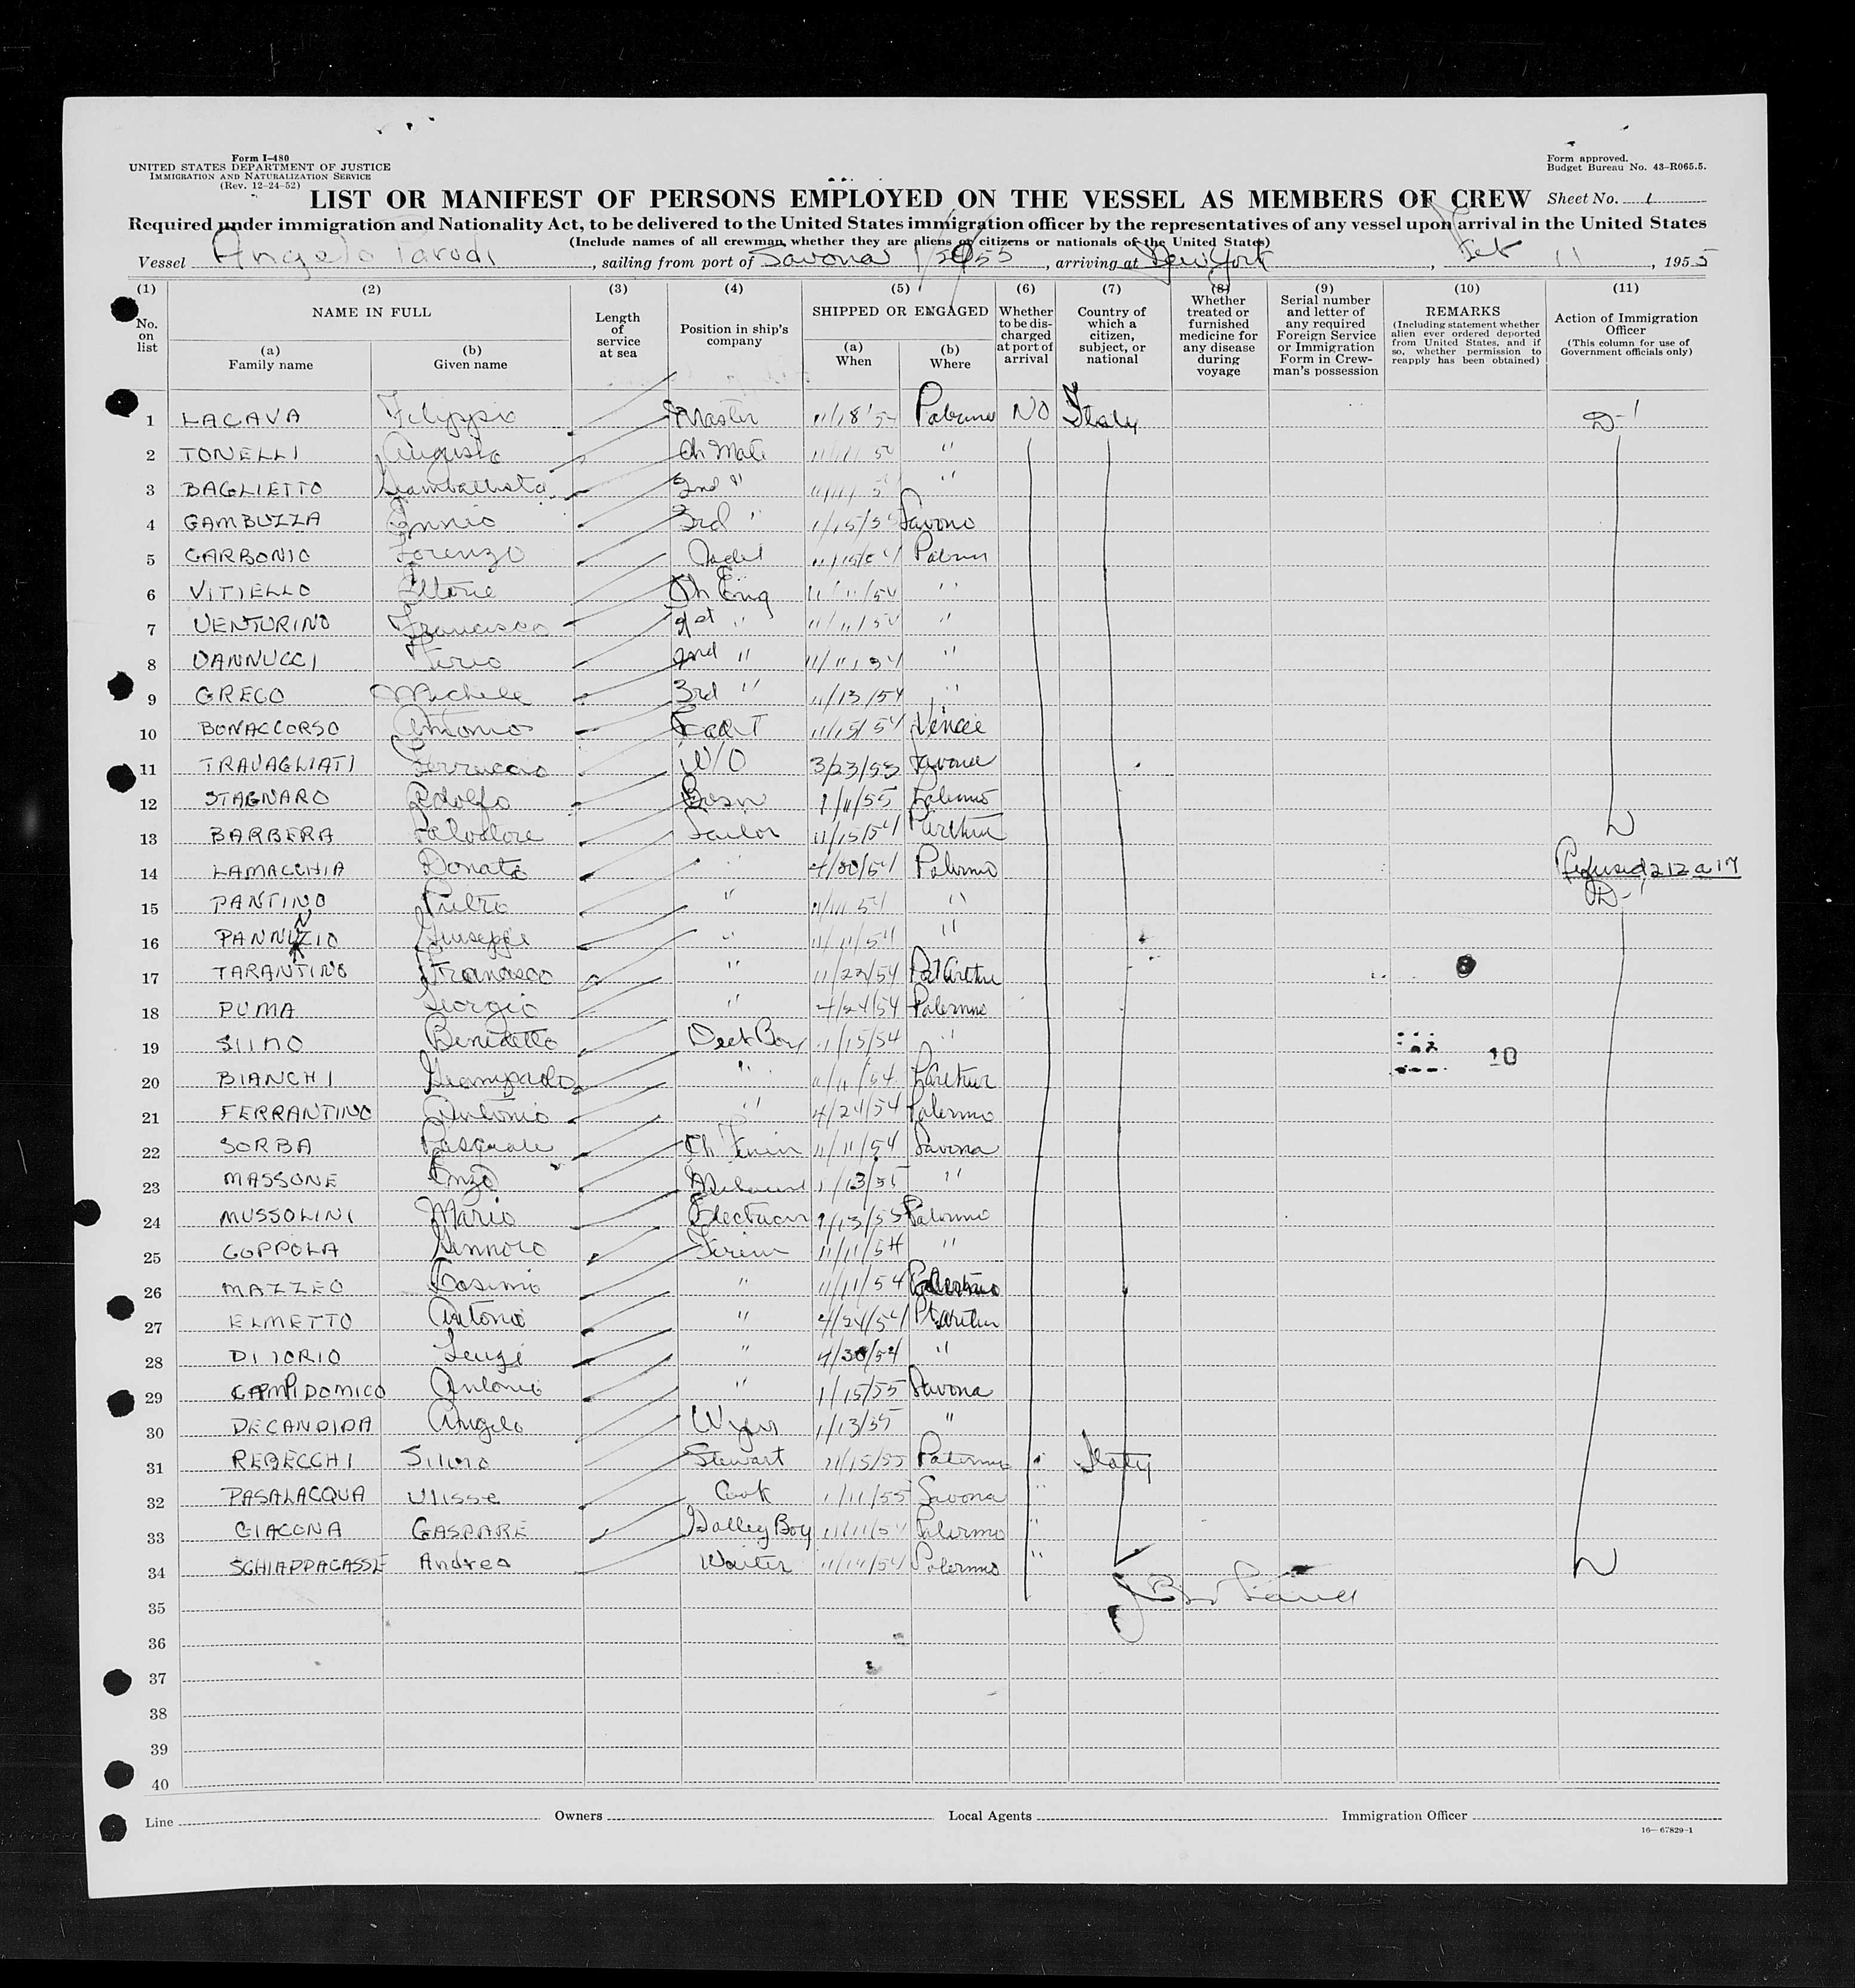 Form I-480
UNITED STATES DEPARTMENT OF JUSTICE
IMMIGRATION AND NATURALIZATION SERVICE
(Rev. 12-24-52)
Form approved.
Budget Bureau No. 43-R065.5.
LIST OR MANIFEST OF PERSONS EMPLOYED ON THE VESSEL AS MEMBERS OF CREW Sheet No. 1
Required under immigration and Nationality Act, to be delivered to the United States immigration officer by the representatives of any vessel upon arrival in the United States
(Include names of all crewman, whether they are aliens or citizens or nationals of the United States)
Vessel Angelo Parodi, sailing from port of Savona, arriving at New York, 11, 1955
(1) No. on list
(2) NAME IN FULL
(a) Family name
(b) Given name
(3) Length of service at sea
(4) Position in ship's company
(5) SHIPPED OR ENGAGED
(a) When
(b) Where
(6) Whether to be discharged at port of arrival
(7) Country of which a citizen, subject, or national
(8) Whether treated or furnished medicine for any disease during voyage
(9) Serial number and letter of any required Foreign Service or Immigration Form in Crewman's possession
(10) REMARKS (Including statement whether alien ever ordered deported from United States, and if so, whether permission to reapply has been obtained)
(11) Action of Immigration Officer (This column for use of Government officials only)
1 LACAVA Filippo Master 11/18/54 Palermo NO Italy D-1
2 TONELLI Augusto Ch Mate "
3 BAGLIETTO Giambattista 2nd " "
4 GAMBUZZA Ennio 3rd " Savona
5 CARBONIO Lorenzo Cadet
6 VITIELLO Ettore Ch Eng 11/11/54 "
7 VENTURINO Francesco 1st " 11/11/54 "
8 VANNUCCI 2nd " 11/11/54 "
9 GRECO Michele 3rd " 11/13/54 "
10 BONACCORSO Antonio 11/15/54 Venice
11 TRAVAGLIATI Ferruccio W/O 3/23/53 Savona
12 STAGNARO Adolfo Bosn 1/11/55 Palermo
13 BARBERA Salvatore Sailor 11/15/54
14 LAMACCHIA Donato " Palermo Refused 212 a 17
15 PANTINO Pietro " " D-1
16 PANNUNZIO Giuseppe " 11/11/54 "
17 TARANTINO Francesco " 11/22/54 Pt Arthur
18 PUMA Giorgio " 4/24/54 Palermo
19 SIINO Benedetto Deck Boy 11/15/54 " 10
20 BIANCHI Giampaolo " 11/11/54
21 FERRANTINO Antonio " 4/24/54 Palermo
22 SORBA Pasquale 11/11/54 Savona
23 MASSONE Enzo 1/13/55 "
24 MUSSOLINI Mario Electrician 1/13/55 Palermo
25 COPPOLA Gennaro Firem 11/11/54 "
26 MAZZEO Cosimo " 11/11/54
27 ELMETTO Antonio " 4/24/54 Pt Arthur
28 DI IORIO Luigi " 4/30/54 "
29 CAMPIDOMICO Antonio " 1/15/55 Savona
30 DECANDIDA Angelo Wiper 1/13/55 "
31 REBECCHI Silvio Stewart 11/15/55 Palermo " Italy
32 PASALACQUA Ulisse Cook 1/11/55 Savona "
33 GIACONA GASPARE Galley Boy 11/11/54 Palermo "
34 SCHIAPPACASSE Andrea Waiter 11/14/54 Palermo "
35
36
37
38
39
40
Line Owners Local Agents Immigration Officer
16—67829-1